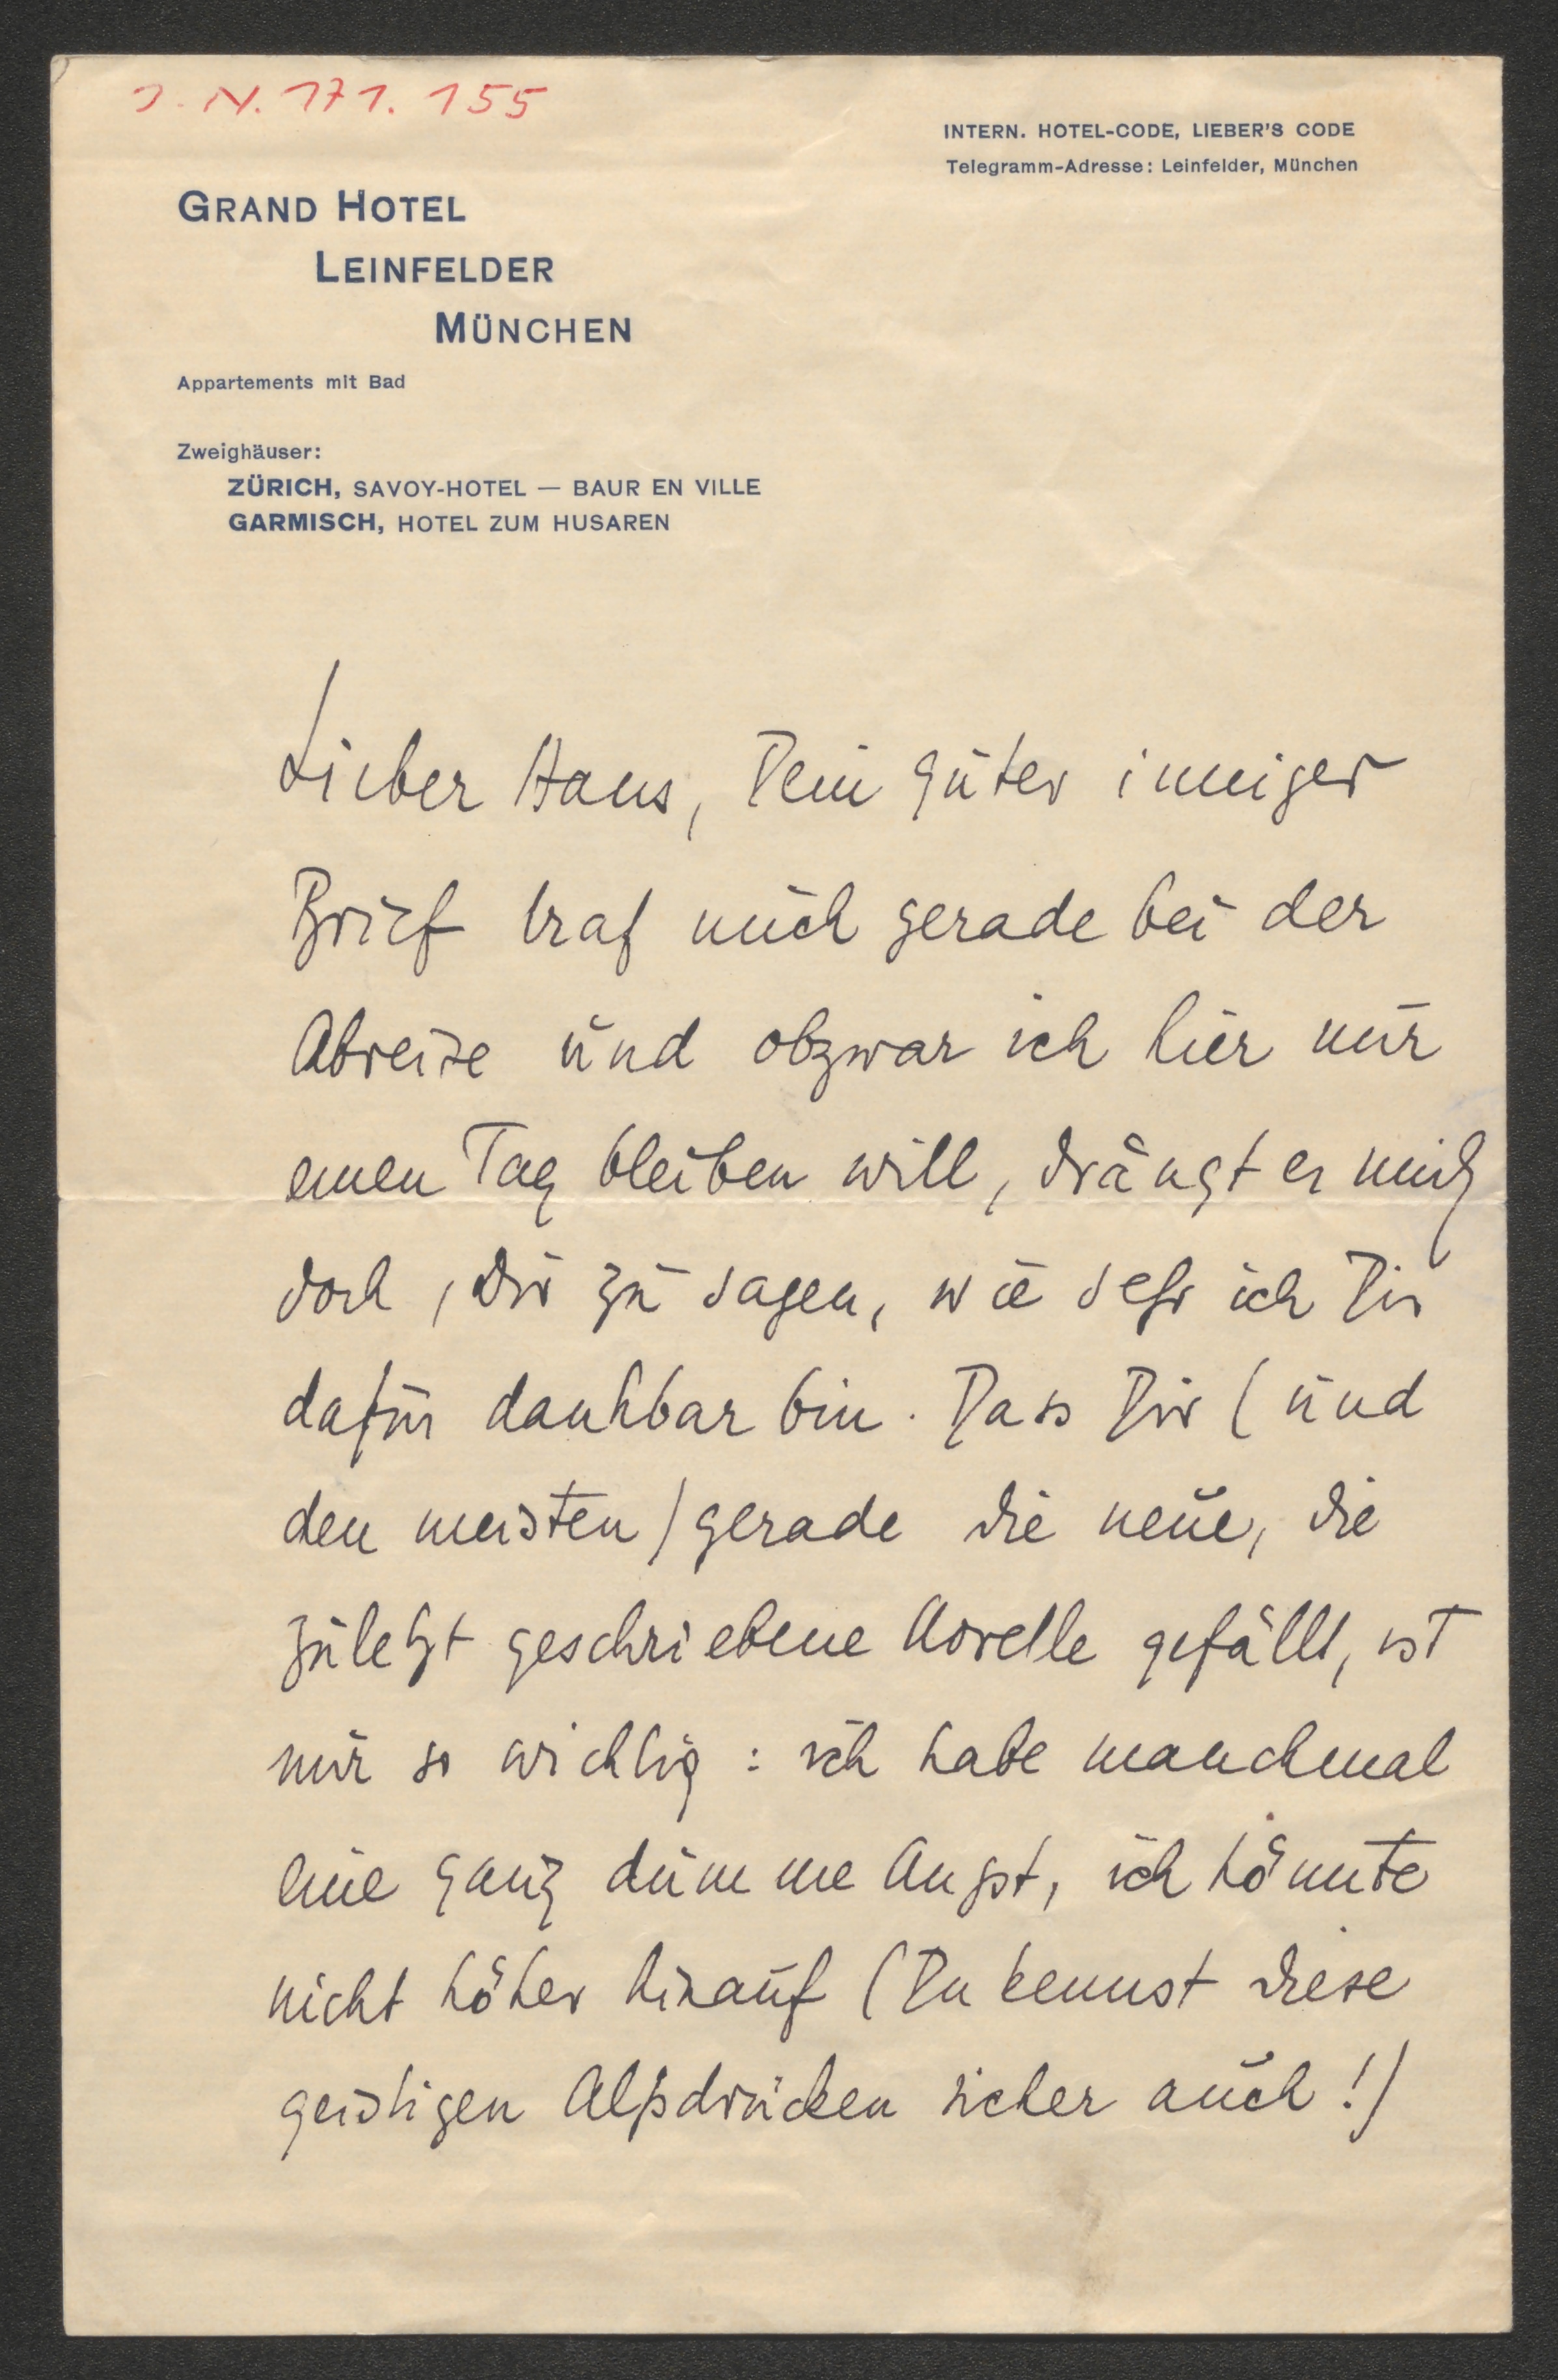 J. N. 171. 155
INTERN. HOTEL-CODE, LIEBER'S CODE
Telegramm-Adresse: Leinfelder, München
GRAND HOTEL
LEINFELDER
MÜNCHEN
Appartements mit Bad
Zweighäuser:
ZÜRICH, SAVOY-HOTEL — BAUR EN VILLE
GARMISCH, HOTEL ZUM HUSAREN
Lieber Hans, Dein guter inniger
Brief traf mich gerade bei der
Abreise und obzwar ich hier nur
einen Tag bleiben will, drängt es mich
doch, Dir zu sagen, wie sehr ich Dir
dafür dankbar bin. Dass Dir (und
den meisten) gerade die neue, die
zuletzt geschriebene Novelle gefällt, ist
mir so wichtig: ich habe manchmal
eine ganz dumme Angst, ich könnte
nicht höher hinauf (Du kennst diese
geistigen Alpdrücken sicher auch!)